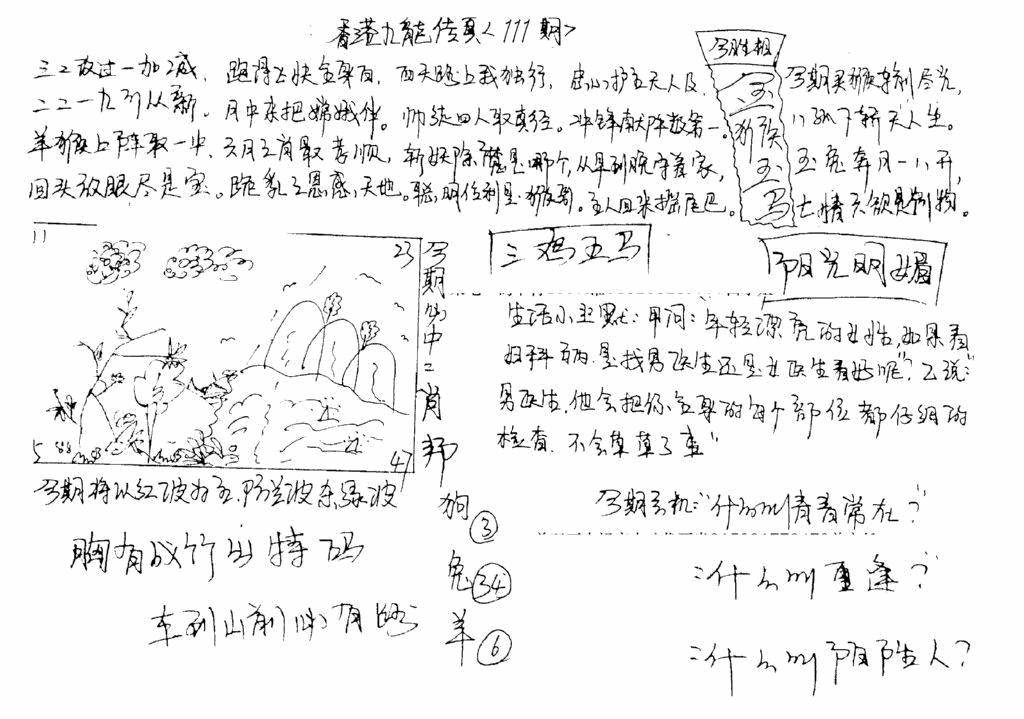 香港九龍传真<111期>
三二放过一加减。跑得上快全身白，西天路上我独行，忠心护主天人及，
二二一九引从新。月中亲把嫦娥伴。师徒四人取真经。冲锋献阵数第一。
羊猴上阵取一中，六月之肖最孝顺，斩妖除魔是哪个，从早到晚守着家，
回头放眼尽是宝。跪乳之恩感天地。聪明伶利是猴哥。主人回来摇尾巴。
今胜相
玉
猴
玉
马
今期买猴转利尽光，
八纵下轿天人生。
玉兔奔月一八开，
七情六欲是动物。
11
23
5
47
今期必中二肖邦
狗③
兔㉞
羊⑥
三鸡五马
阳光明媚
生活小幽默：甲问：年轻漂亮的女性，如果看
妇科病，是找男医生还是女医生看好呢"？乙说："
男医生，他会把你全身的每个部位都仔细的
检查，不会草草了事"
今期将以红波为主，防兰波杂绿波
胸有成竹出特码
车到山前必有路
今期玄机："什么叫青春常在？"
：什么叫重逢？"
：什么叫阴阳人？